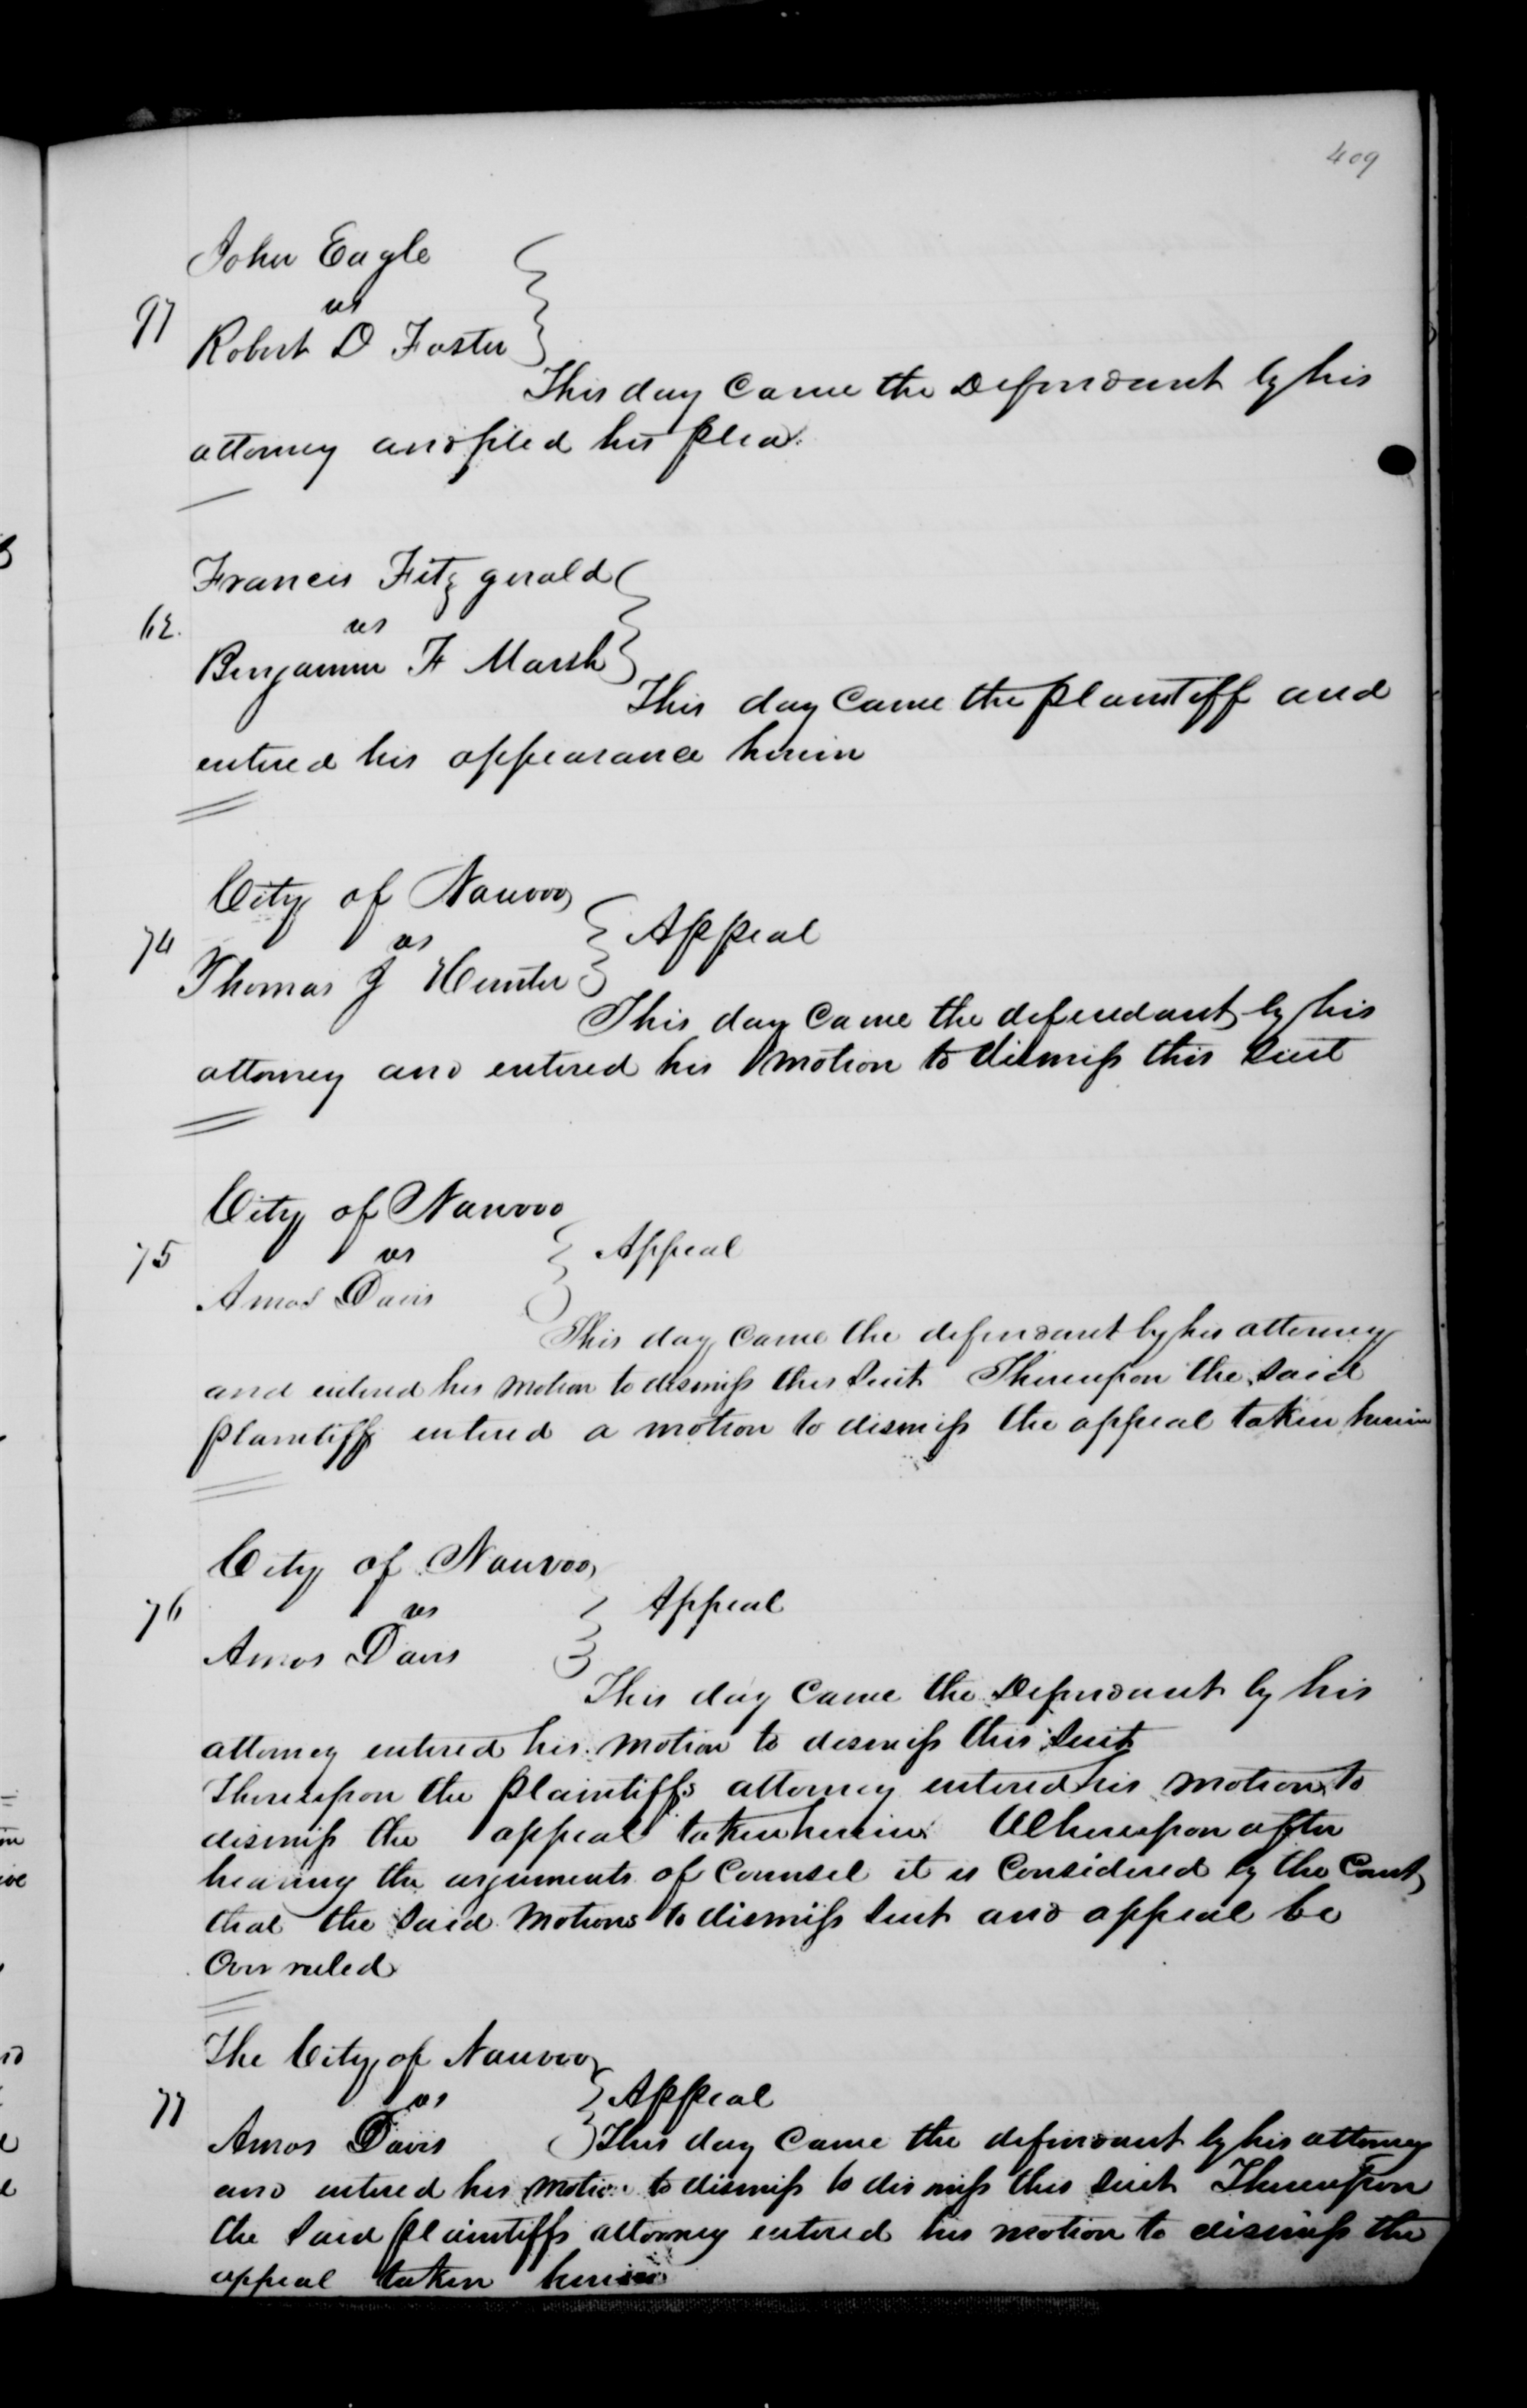 409
John Eagle
97 vs
Robert D Foster
This day Came the Defendant by his
attorney and filed his plea.
Francis Fitzgerald
62. vs
Benjamin F Marsh
This day Came the plaintiff and
entered his appearance herein
City of Nauvoo
74 vs Appeal
Thomas J Hunter
This day Came the defendant by his
attorney and entered his motion to dismiss this Suit
City of Nauvoo
75 vs Appeal
Amos Davis
This day Came the defendant by his attorney
and entered his motion to dismiss this Suit Thereupon the Said
plaintiff entered a motion to dismiss the appeal taken herein
City of Nauvoo
76 vs Appeal
Amos Davis
This day Came the Defendant by his
attorney entered his motion to dismiss this Suit
Thereupon the plaintiffs attorney entered his motion to
dismiss the appeal taken herein. Whereupon after
hearing the arguments of Counsel it is Considered by the Court
that the Said Motions to dismiss Suit and appeal be
Over ruled
The City of Nauvoo
77 vs Appeal
Amos Davis This day Came the defendant by his attorney
and entered his motion to dismiss to dismiss this Suit Thereupon
the Said plaintiffs attorney entered his motion to dismiss the
appeal taken herein